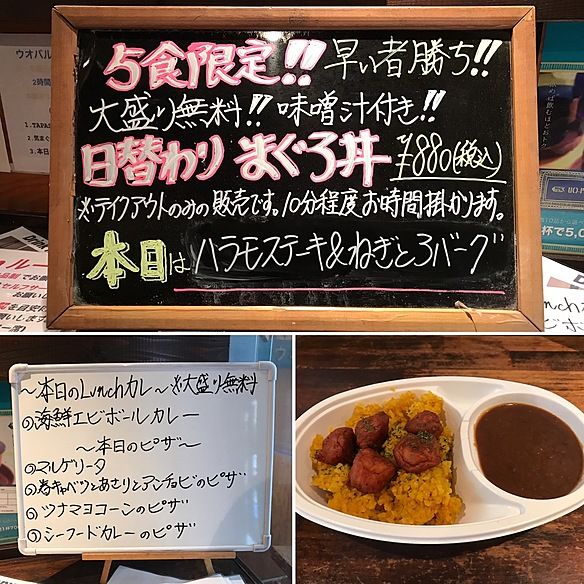 5食限定!! 早い者勝ち!!
大盛り無料!! 味噌汁付き!!
日替わり まぐろ丼 ¥880(税込)
※テイクアウトのみの販売です。10分程度お時間掛かります。
本日は ハラモステーキ&ねぎとろバーグ
～本日のLunchカレー ※大盛り無料
の海鮮エビボールカレー
～本日のピザ～
のマルゲリータ
の春キャベツとあさりとアンチョビのピザ
のツナマヨコーンのピザ
のシーフードカレーのピザ
ウオバル
2時間